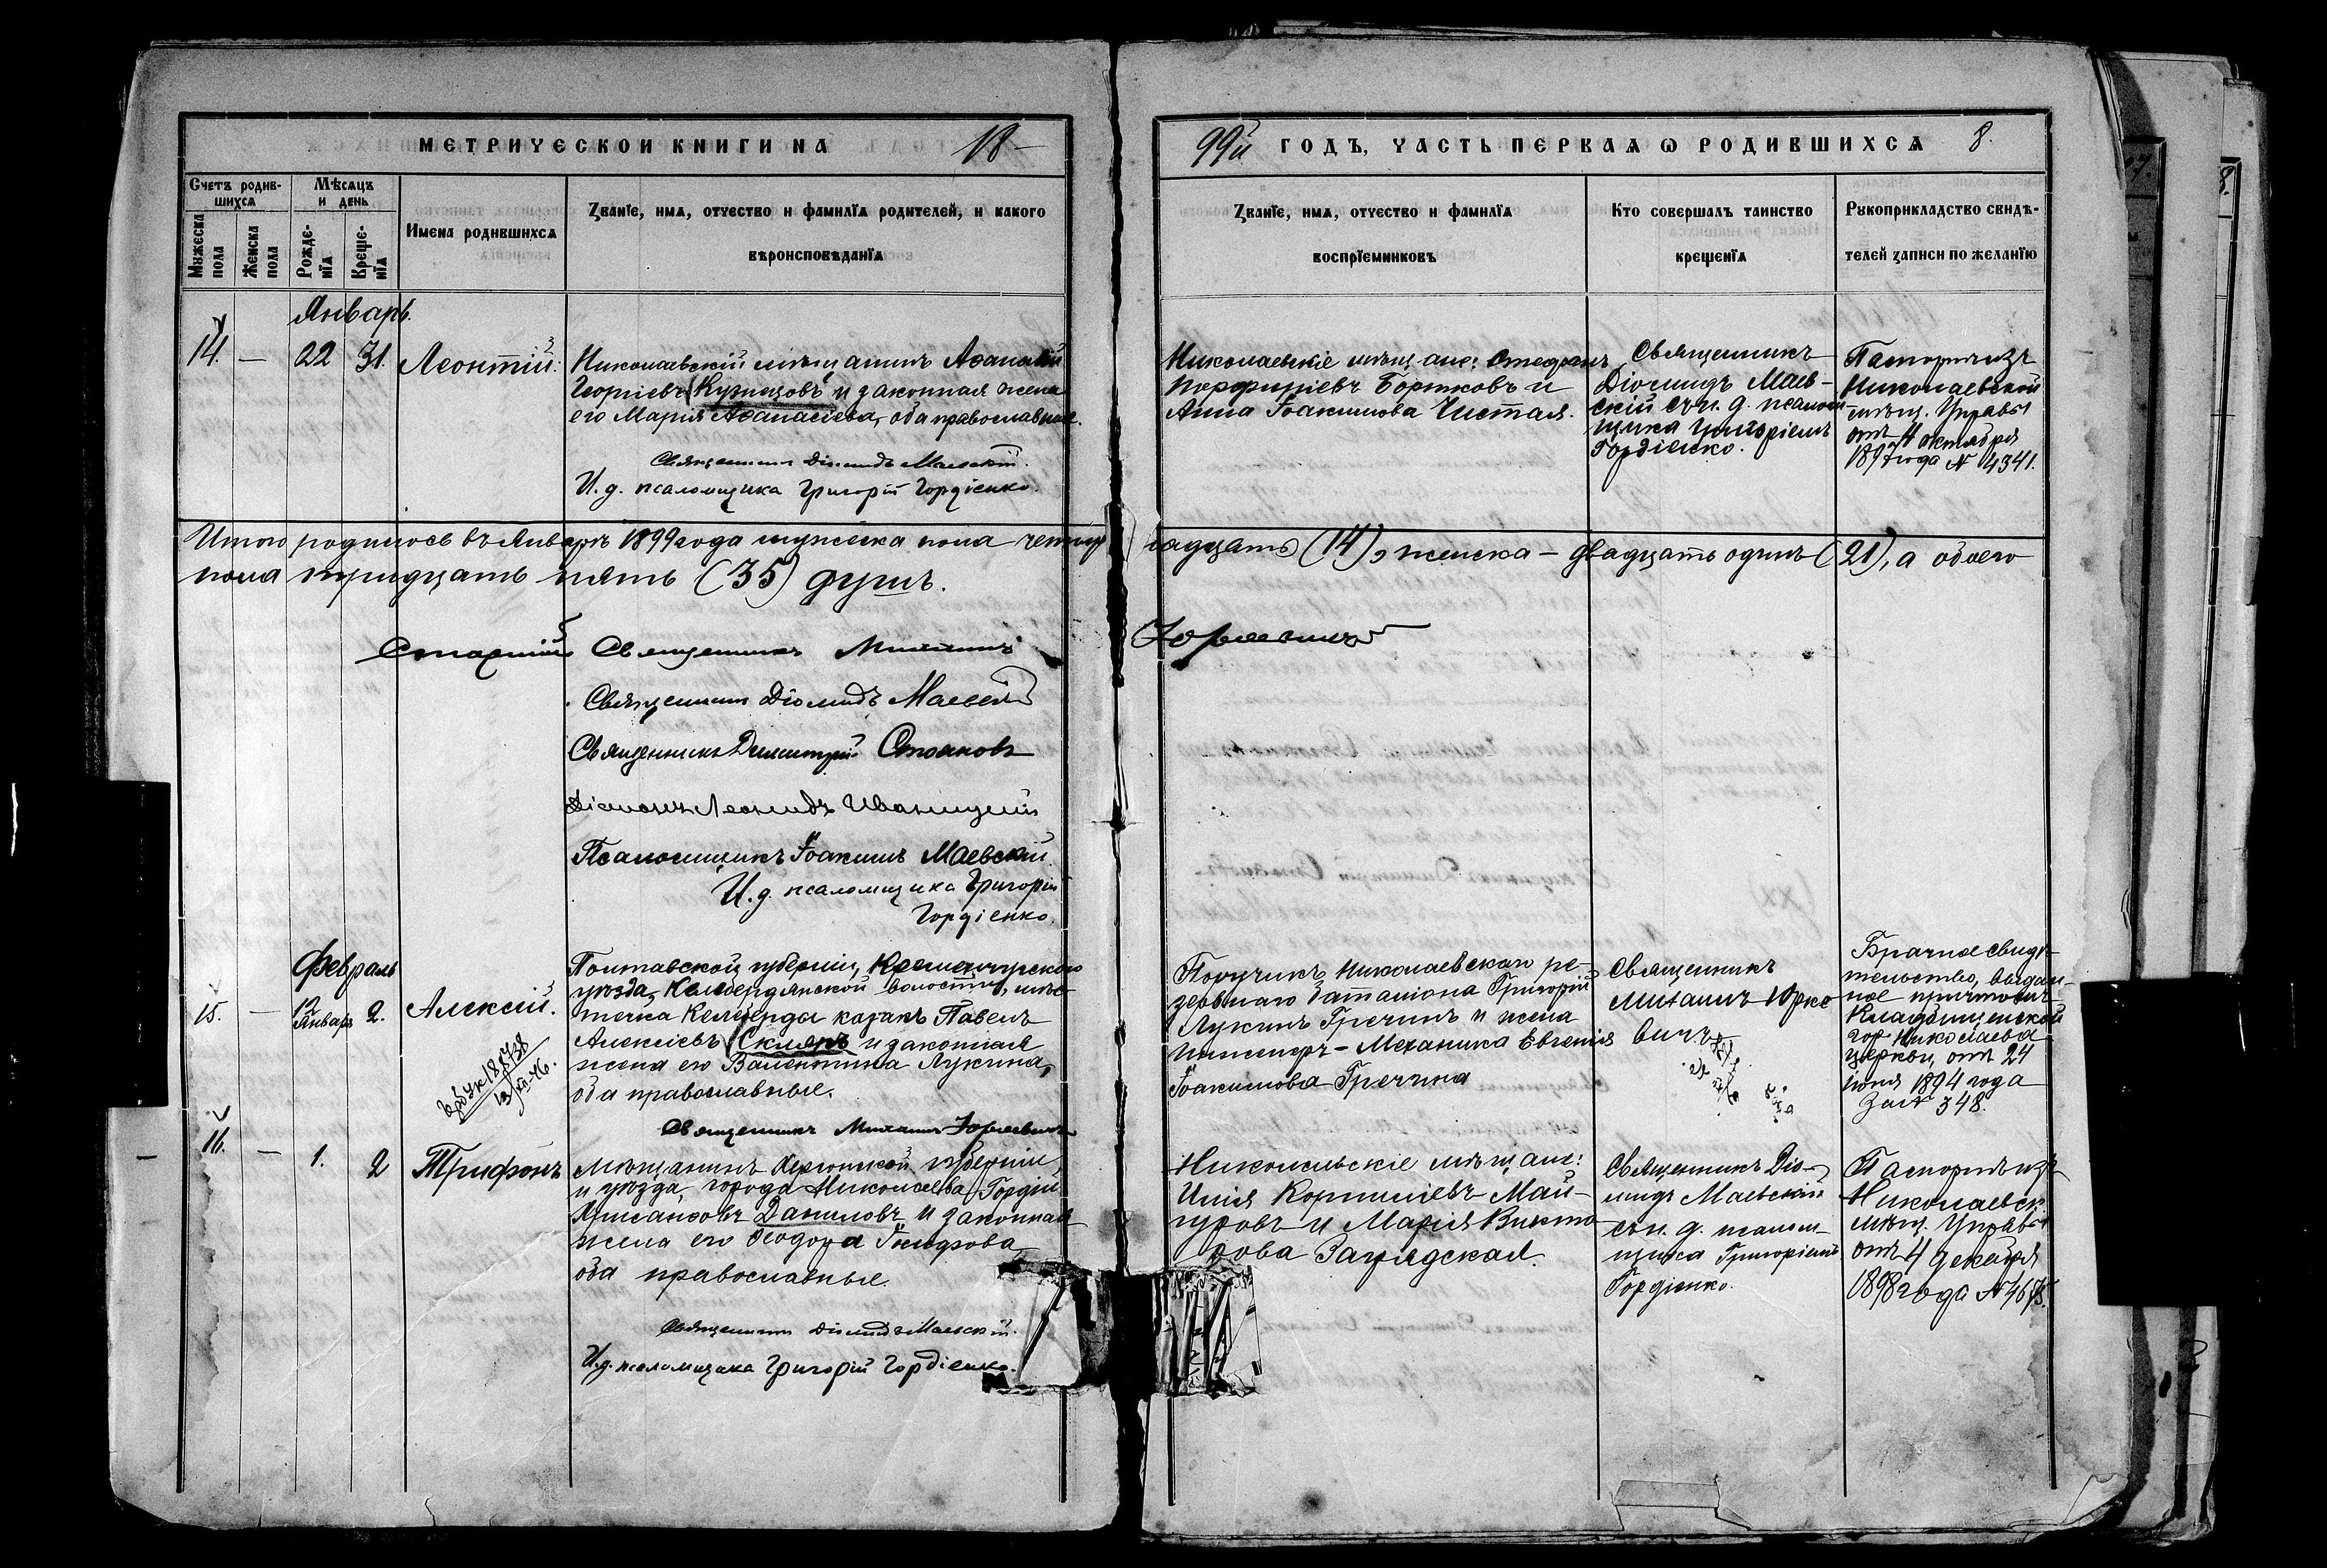 МЕТРИЧЕСКОЙ КНИГИ НА 18
99й ГОДЪ, ЧАСТЬ ПЕРВАЯ Ѡ РОДИВШИХСЯ 8.
Счетъ родив-
шихся
Мужеска
пола
Женска
пола
Мѣсяцъ
и день
Рожде-
нія
Креще-
нія
Имена родившихся
Званіе, имя, отчество и фамилія родителей, и какого
вѣроисповѣданія
Званіе, имя, отчество и фамилія
воспріемниковъ
Кто совершалъ таинство
крещенія
Рукоприкладство свидѣ-
телей записи по желанію
Январь.
14. — 22 31. Леонтій.
Николаевскій мѣщанинъ Аѳанасій
Георгіевъ Кузнецовъ и законная жена
его Марія Аѳанасіева, оба православные.
Священникъ Діомидъ Маевскій.
И. д. псаломщика Григорій Гордіенко.
Николаевскіе мѣщане: Стефанъ
Порфиріевъ Бортковъ и
Анна Іоакимова Чистая.
Священникъ
Діомидъ Маев-
скій съ и. д. псалом-
щика Григоріемъ
Гордіенко.
Паспортъ изъ
Николаевской
мѣщ. Управы
отъ 4 октября
1897 года № 4341.
Итого родилось въ Январѣ 1899 года мужеска пола четыр
надцать (14), женска — двадцать одинъ (21), а обоего
пола тридцать пять (35) душъ.
Старшій Священникъ Михаилъ Юркевичъ
Священникъ Діомидъ Маевскій
Священникъ Димитрій Стояновъ
Діаконъ Леонидъ Иваницкій
Псаломщикъ Іоакимъ Маевскій.
И. д. псаломщика Григорій
Гордіенко.
Февраль
15. — 12 Января 2. Алексій.
Полтавской губерніи, Кременчугскаго
уѣзда, Келебердянской волости, мѣс-
течка Келеберды козакъ Павелъ
Алексіевъ Скляръ и законная
жена его Валентина Лукина,
оба православные.
Священникъ Михаилъ Юркевичъ
Поручикъ Николаевскаго ре-
зервнаго баталіона Григорій
Лукинъ Гречинъ и жена
Инженеръ-Механика Евгенія
Іоакимова Гречина
Священникъ
Михаилъ Юрке
вичъ
Брачное свидѣ-
тельство, выдан-
ное причтомъ
Кладбищенской
гор. Николаева
церкви, отъ 24
іюня 1894 года
за № 348.
16. — 1. 2 Трифонъ
Мѣщанинъ Херсонской губерніи,
и уѣзда, города Николаева Гордій
Хрисанфовъ Даниловъ и законная
жена его Ѳеодора
оба православные.
Священникъ Діомидъ Маевскій.
И. д. псаломщика Григорій Гордіенко.
Николаевскіе мѣщане:
Илія Корниліевъ Май-
гуровъ и Марія Викто
рова
Священникъ Діо-
мидъ Маевскій
съ и. д. псалом-
щика Григоріемъ
Гордіенко.
Паспортъ изъ
Николаевск.
мѣщ. Управы
отъ 4 декабря
1898 года №